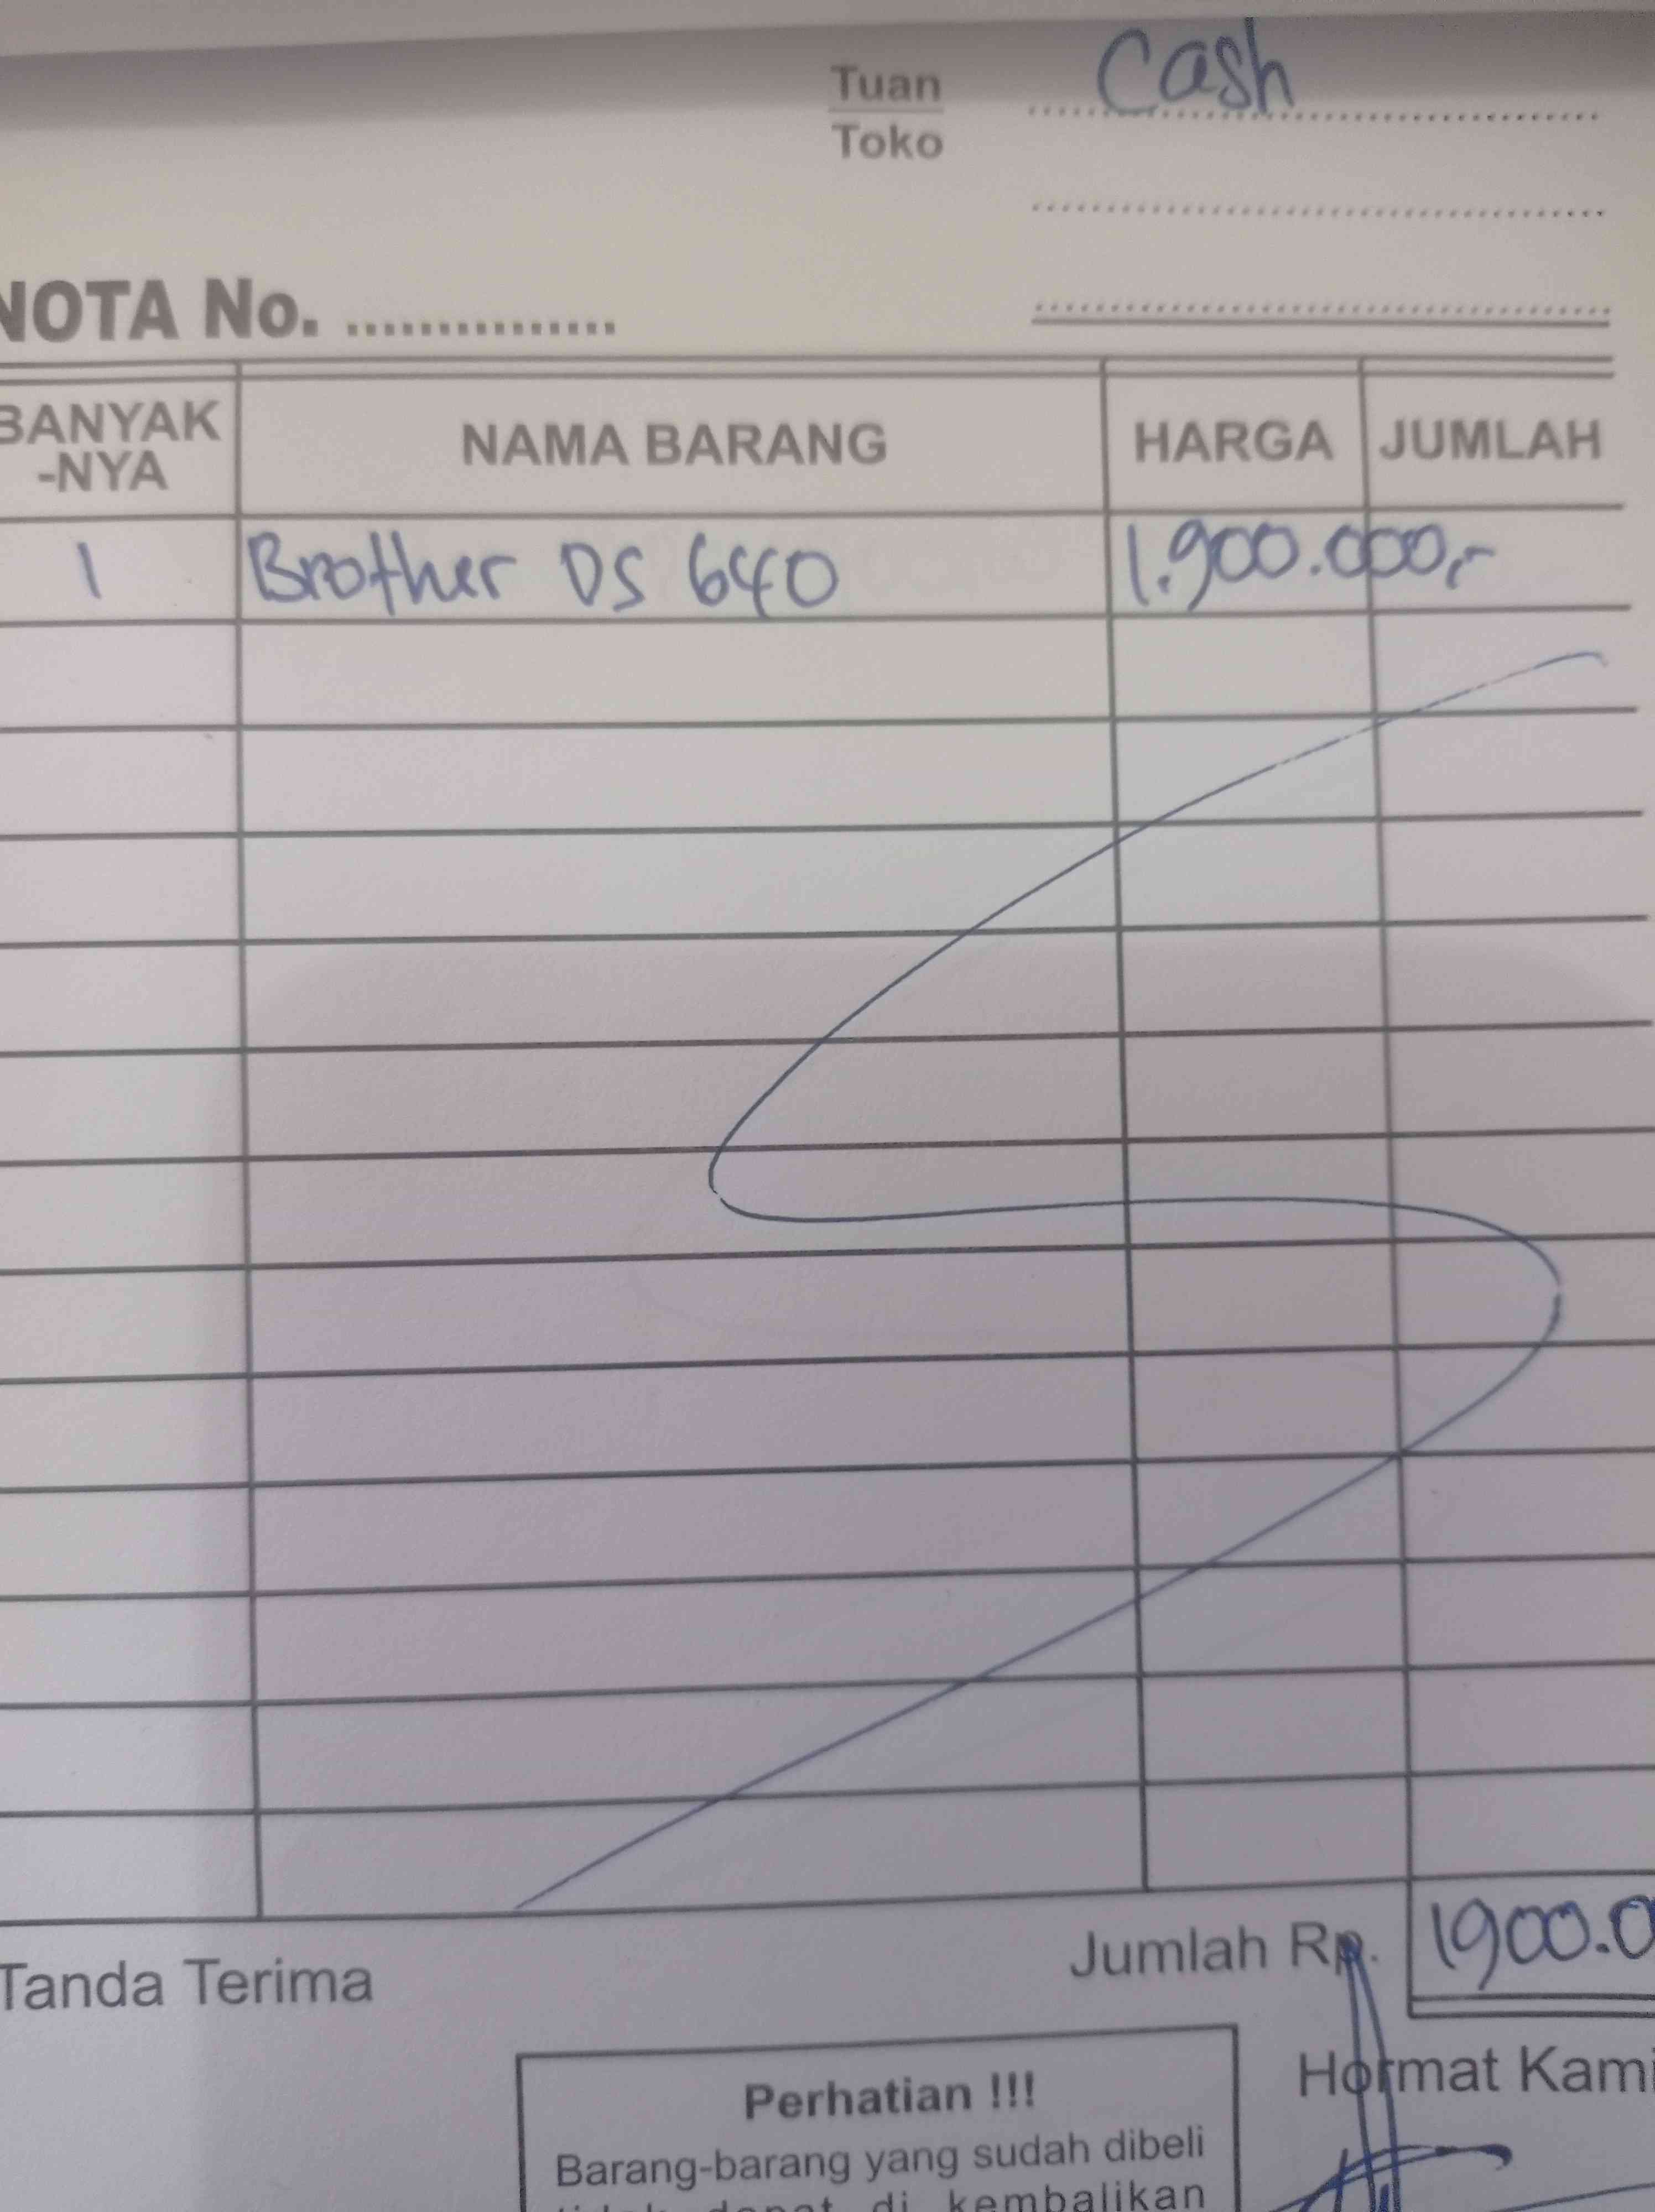 Tuan Cash
Toko
NOTA No. ...............
BANYAK NAMA BARANG HARGA JUMLAH
-NYA
1 Brother DS 640 1.900.000,-
Jumlah Rp. 1900.0
Tanda Terima
Hormat Kami
Perhatian !!!
Barang-barang yang sudah dibeli
tidak dapat di kembalikan